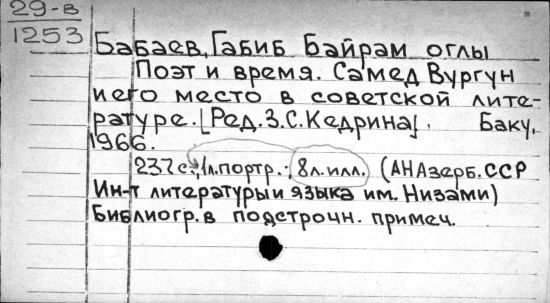 29-в
1253
Бабаев, Габиб Байрам оглы
Поэт и время. Самед Вургун
и его место в советской лите-
ратуре. [Ред. З.С. Кедрина]. Баку,
1966.
232 с., 1 л. портр.; 8 л. илл. (АН Азерб. ССР
Ин-т литературы и языка им. Низами)
Библиогр. в подстрочн. примеч.